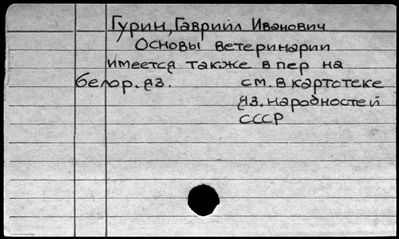 Гурин, Гавриил Иванович
Основы ветеринарии
имеется также в пер на
белор. яз. см. в картотеке
яз. народностей
СССР